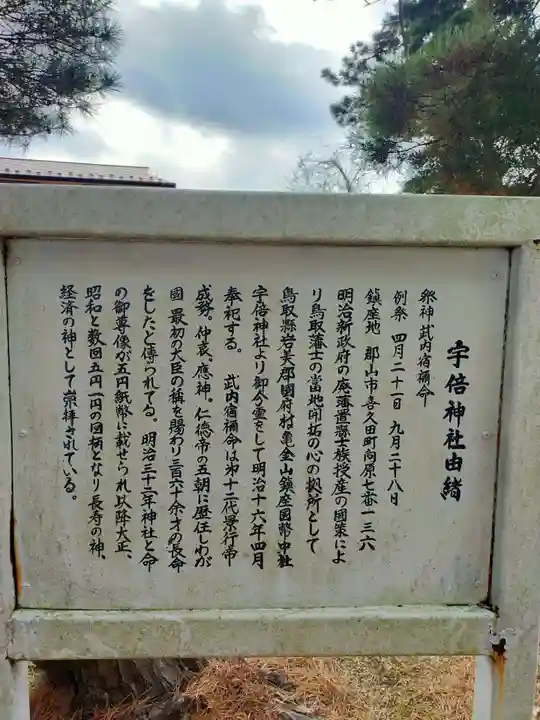 宇倍神社由緒
祭神 武内宿禰命
例祭 四月二十一日 九月二十八日
鎮座地 郡山市喜久田町向原七番一三六
明治新政府の廃藩置縣士族授産の國策によ
り鳥取藩士の當地開拓の心の拠所として
鳥取縣岩美郡國府村亀金山鎮座國幣中社
宇倍神社より御分霊をして明治十六年四月
奉祀する。 武内宿禰命は第十二代景行帝
成務。仲哀、應神。仁徳帝の五朝に歴任しわが
國 最初の大臣の称を賜わり三百六十余才の長命
をしたと傳られてる。明治三十二年神社と命
の御尊像が五円紙幣に載せられ以降大正、
昭和と数回五円一円の図柄となり長寿の神、
経済の神として崇拝されている。